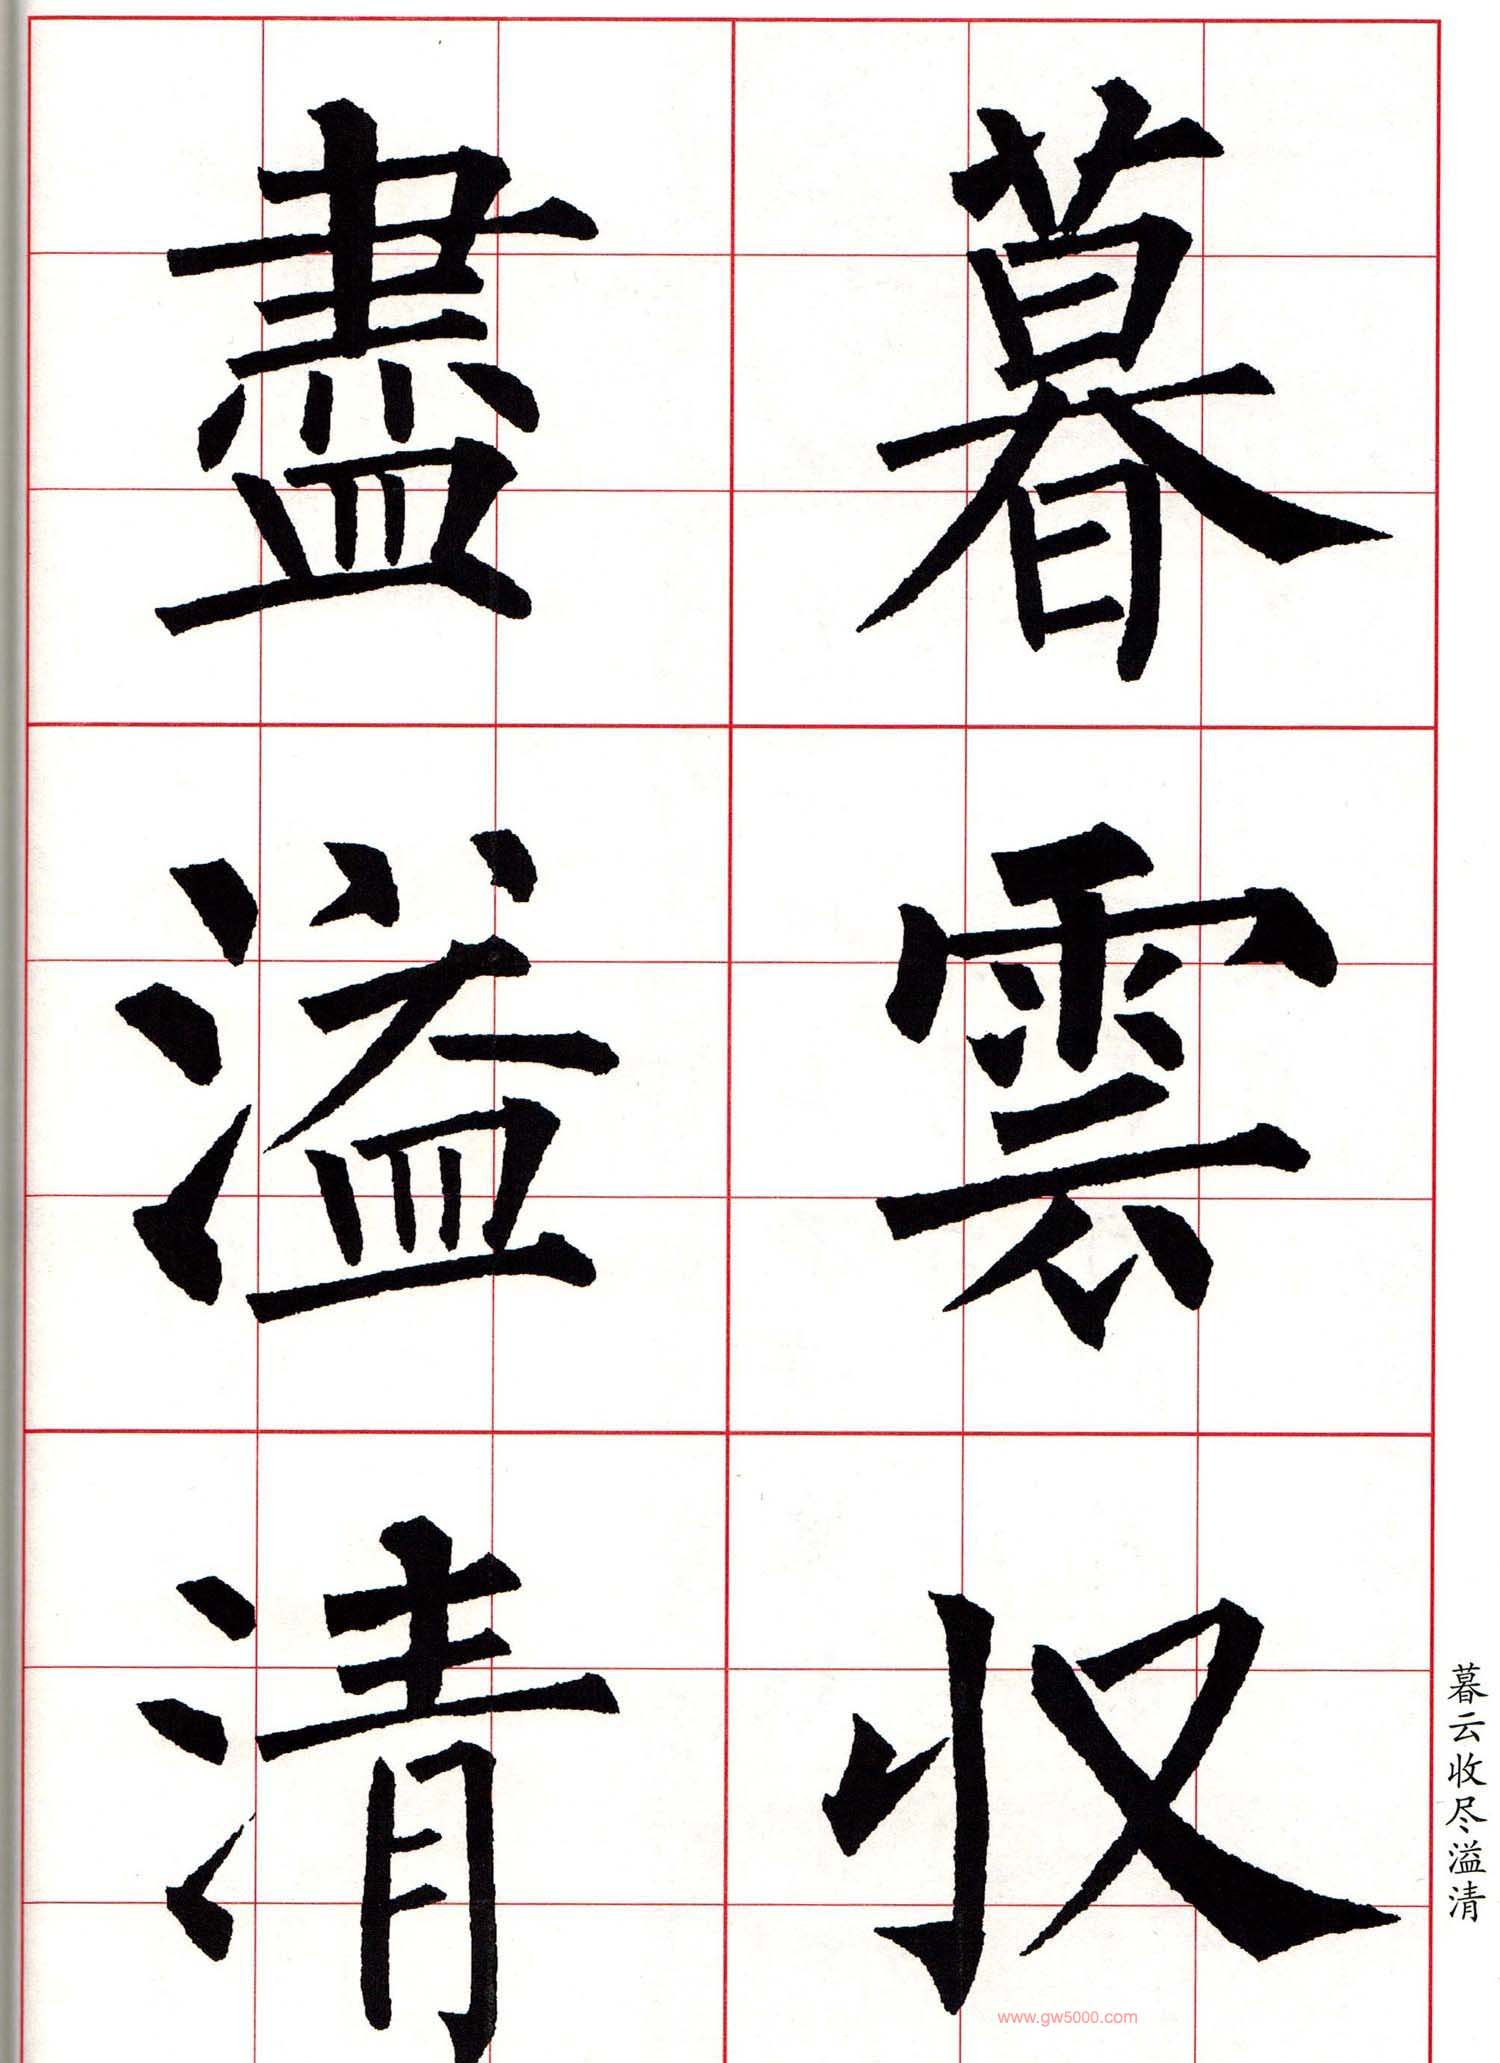 暮雲収
盡溢清
暮云收尽溢清
www.gw5000.com